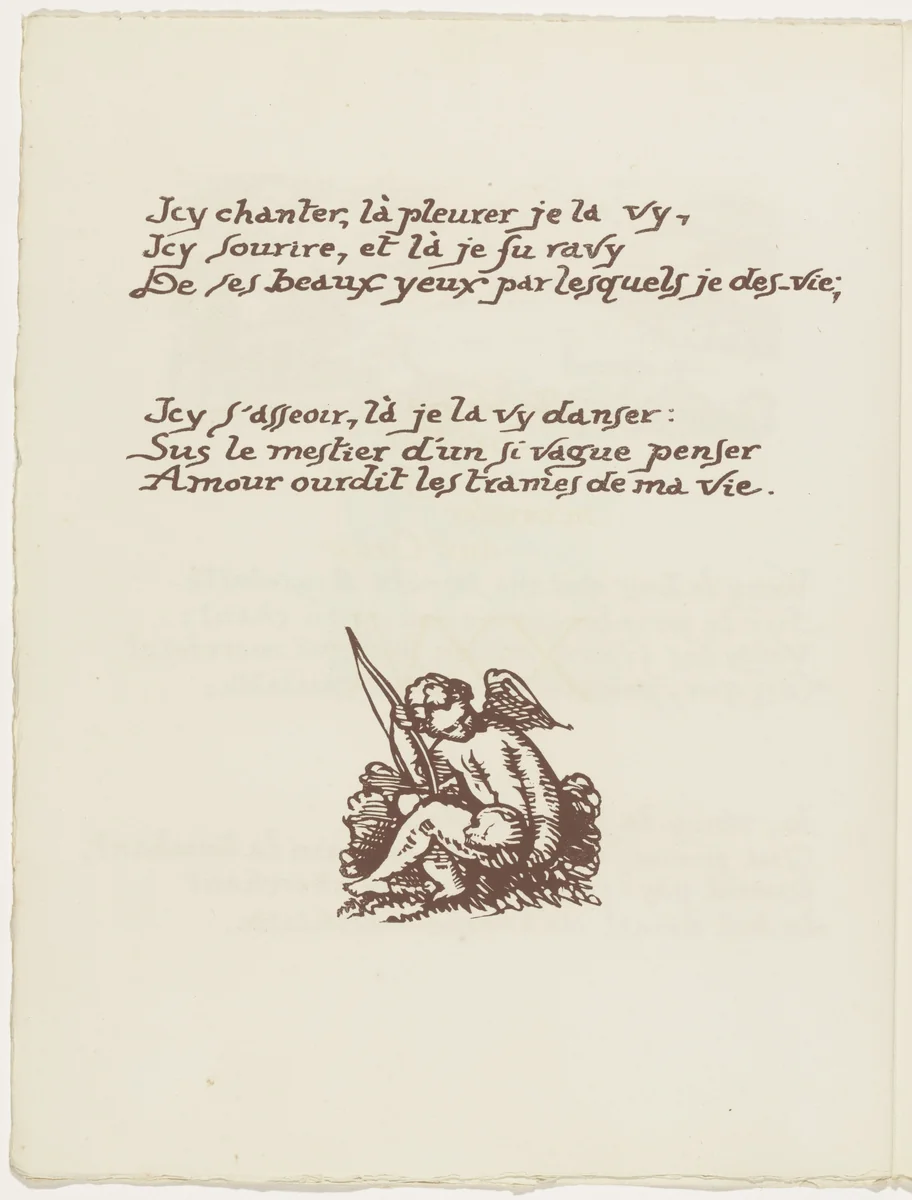 Icy chanter, là pleurer je la vy,
Icy sourire, et là je fu ravy
De ses beaux yeux par lesquels je des-vie;
Icy s'asseoir, là je la vy danser :
Sus le mestier d'un si vague penser
Amour ourdit les trames de ma vie.